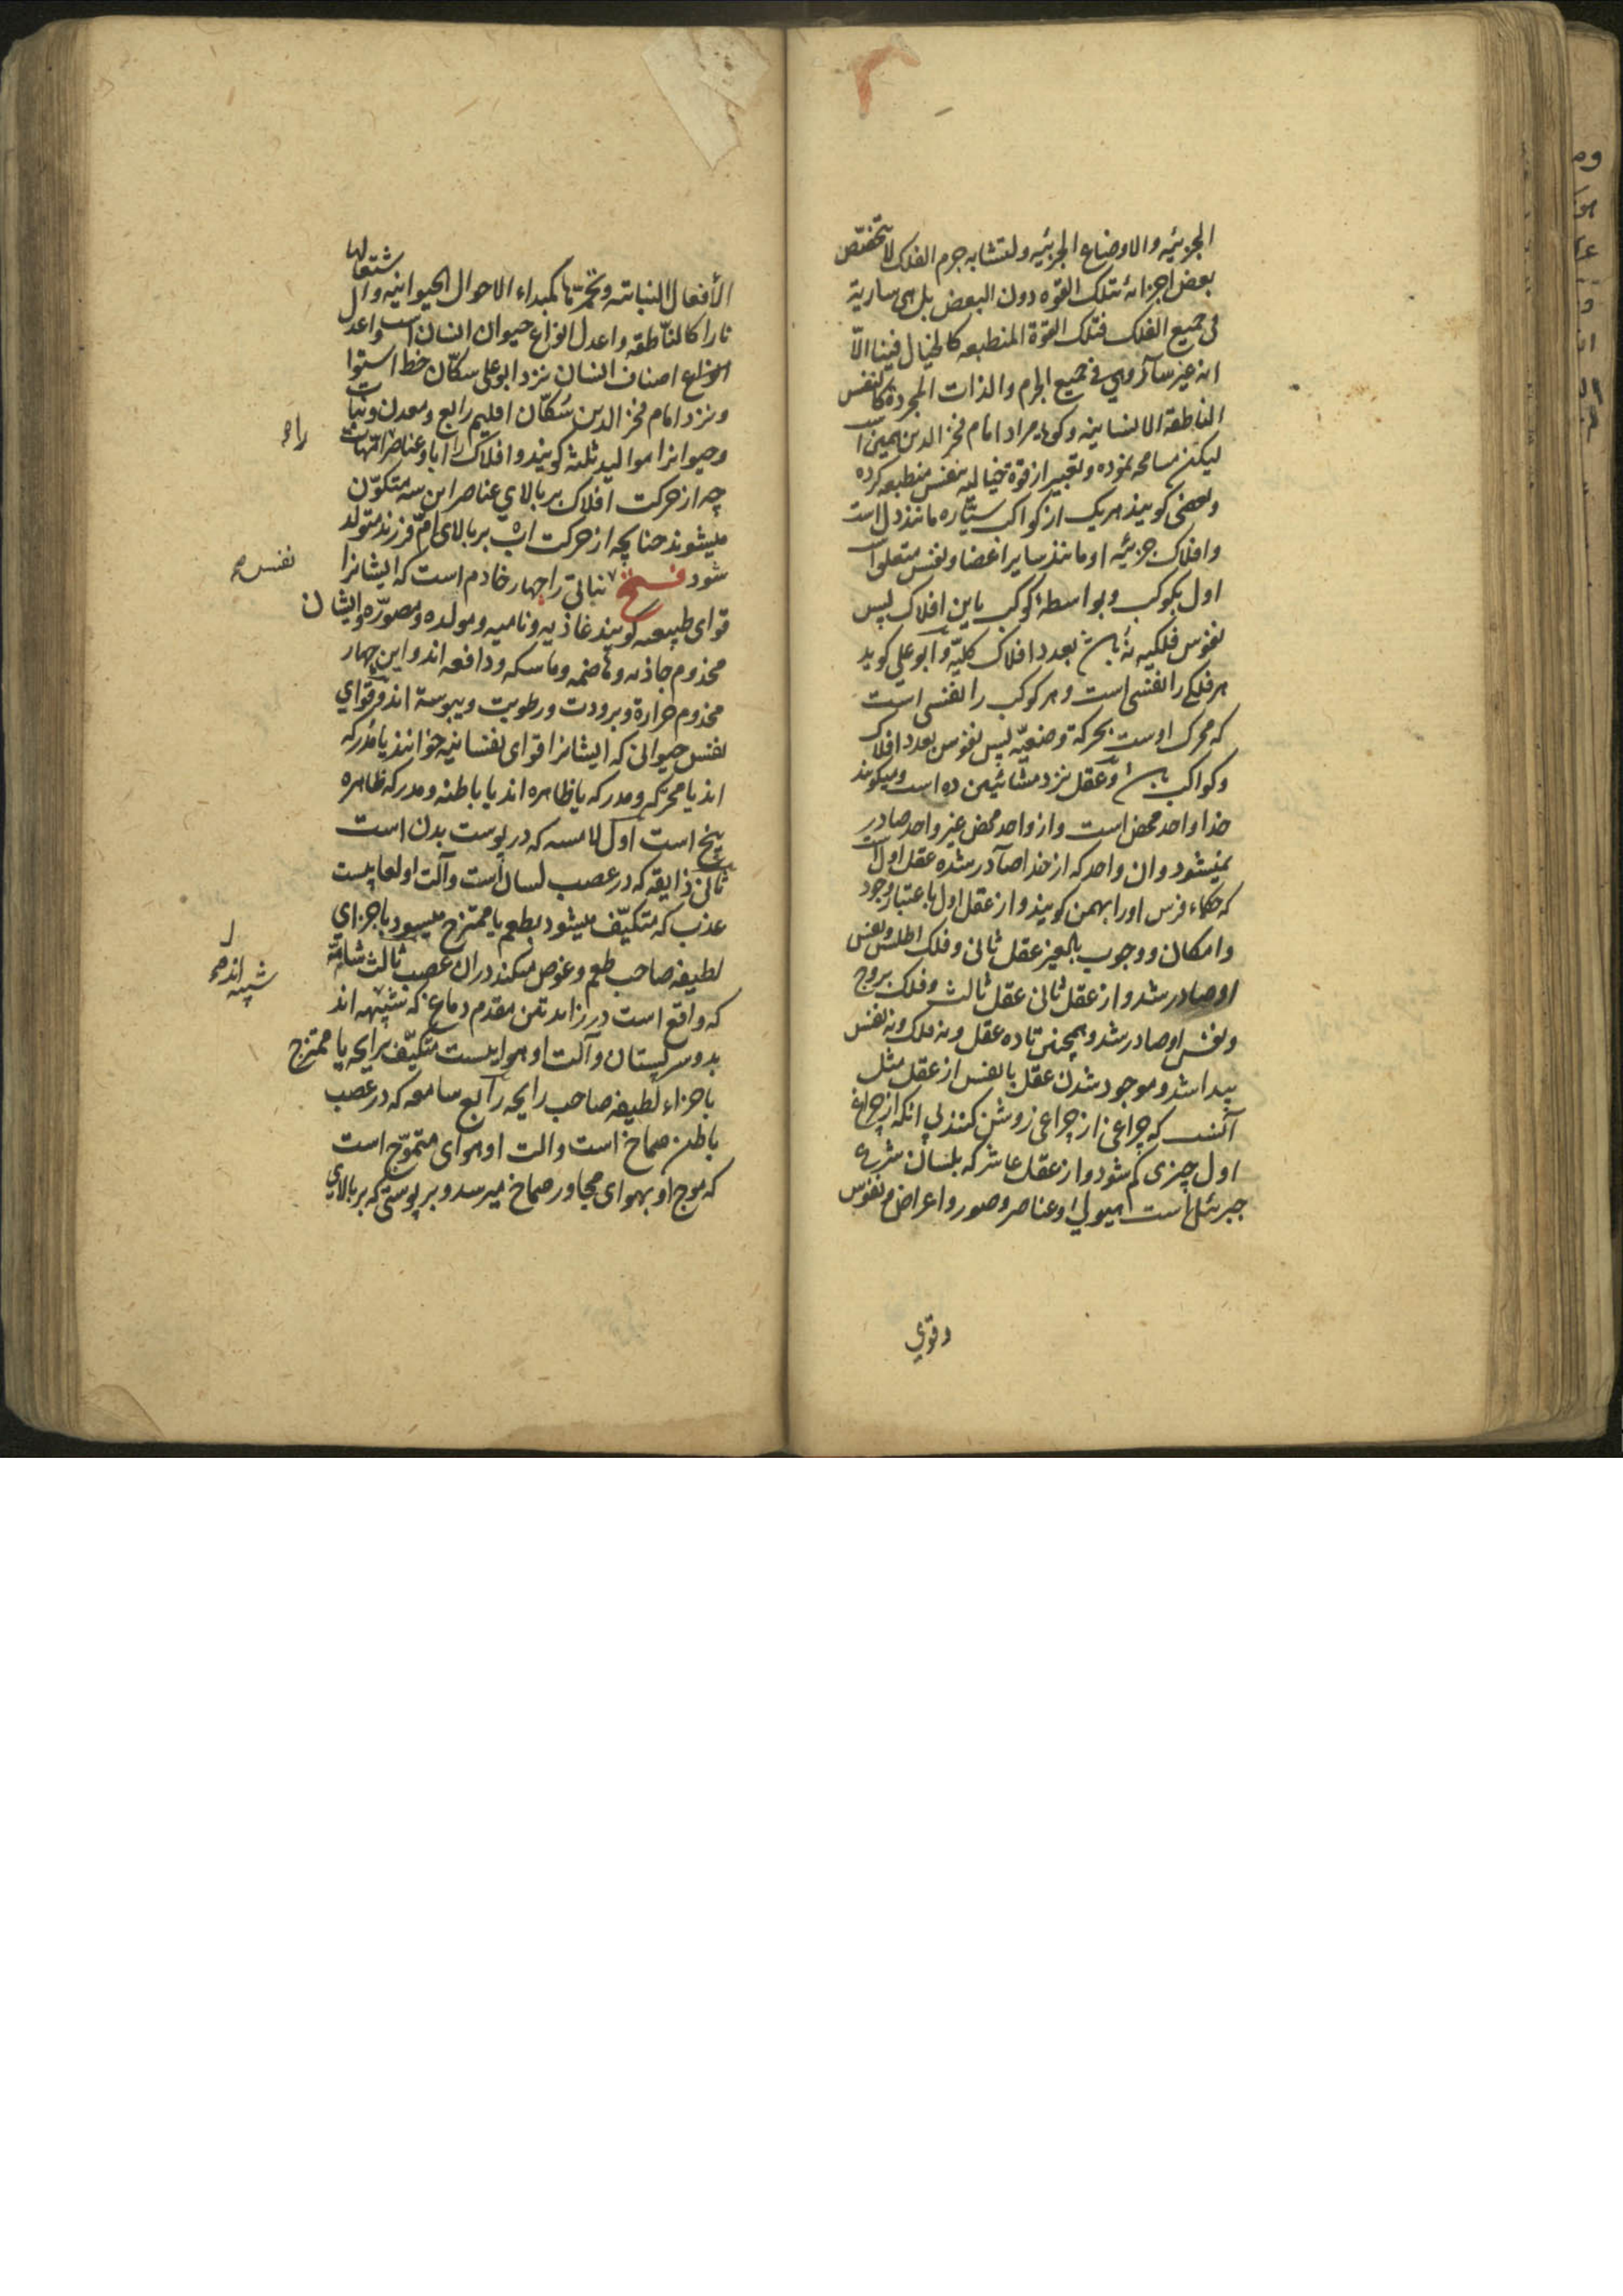 الجزئیه والاوضاع الجزئیه ولتشابه جرم الفلک لا تختص
بعض اجزائه بتلک القوه دون البعض بل هی ساریة
فی جمیع الفلک فتلک القوة المنطبعه کالخیال فینا الّا
انه غیر سار وهی فی جمیع الجرم والذات المجردة کالنفس
الناطقة الانسانیه وکویا مراد امام فخر الدین همین است
لیکن مسامحه نموده وتعبیر از قوة خیالیه بنفس منطبعه کرده
وبعضی کویند هریک از کواکب سیّاره مانند دل است
وافلاک جزئیه او مانند سایر اعضا ونفس متعلق است
اول بکوکب وبواسطهٔ کوکب باین افلاک پس
نفوس فلکیه نُه باشد بعدد افلاک کلیّه وابو علی کوید
هر فلکی را نفسی است وهر کوکب را نفسی است
که محرک اوست بحرکة وضعیّه پس نفوس بعدد افلاک
وکواکب باشد وعقل نزد مشائیین ده است ومیکویند
خدا واحد محض است واز واحد محض غیر واحد صادر
نمیشود وان واحد که از خدا صادر شده عقل اول است
که حکماء فرس اورا بهمن کویند واز عقل اول باعتبار وجود
وامکان ووجوب بالغیر عقل ثانی وفلک اطلس ونفس
او صادر شد واز عقل ثانی عقل ثالث وفلک بروج
ونفس او صادر شد وهمچنین تا ده عقل ونه فلک ونه نفس
پیدا شد وموجود شدن عقل یا نفس از عقل مثل
آنست که چراغی از چراغی روشن کنند بی انکه از چراغ
اول چیزی کم شود واز عقل عاشر که بلسان شرع
جبرئیل است هیولی وعناصر وصور واعراض ونفوس
وقوی
الأفعال النباتیه وتحمّیتها کمبداء الاحوال الحیوانیه وال
شتعالها
نارا کالناطقه واعدل انواع حیوان انسان است واعدل
انواع اصناف انسان نزد ابو علی سکّان خط استوا
ونزد امام فخر الدین سُکّان اقلیم رابع ومعدن ونبات
وحیوانرا موالید ثلثه کویند وافلاک را آبا وعناصر را امهات
راه
چه از حرکت افلاک بر بالای عناصر این سه متکوّن
میشوند چنانچه از حرکت اب بر بالای امّ فرزند متولد
شود فسخ نباتی را چهار خادم است که ایشانرا
نفس صح
قوای طبیعیه کویند غاذیه ونامیه ومولده ومصوّره وایشان
مخدوم جاذبه وهاضمه وماسکه ودافعه اند واین چهار
مخدوم حرارة وبرودت ورطوبت ویبوسة اند وقوای
نفس حیوانی که ایشانرا قوای نفسانیه خوانند یا مُدرکه
اند یا محرّکه ومدرکه یا ظاهره اند یا باطنه ومدرکه ظاهره
پنج است اول لامسه که در پوست بدن است
ثانی ذایقه که در عصب لسان است وآلت او لعابیست
عذب که متکیّف میشود بطعم یا ممتزج میسود باجزای
لطیفه صاحب طعم وغوص میکند دران عصب ثالث شامّه
که واقع است در زایدتین مقدم دماغ که شبیهه اند
شبیه اند صح
بدو سر پستان وآلت او هواییست متکیّف برایحه یا ممتزج
باجزاء لطیفه صاحب رایحه رابع سامعه که در عصب
باطن صماخ است والت او هوای متموّج است
که موج او بهوای مجاور صماخ میرسد وبر پوستی که بر بالای